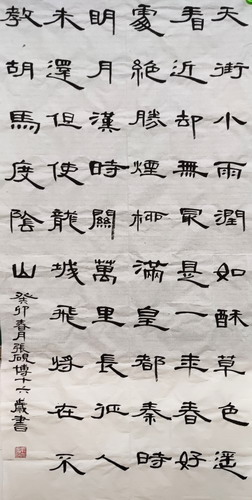 天街小雨潤如酥草色遥
看近却無最是一年春好
處絶勝煙柳滿皇都秦時
明月漢時關萬里長征人
未還但使龍城飛將在不
教胡馬度陰山
癸卯春月張碩博十六歲書